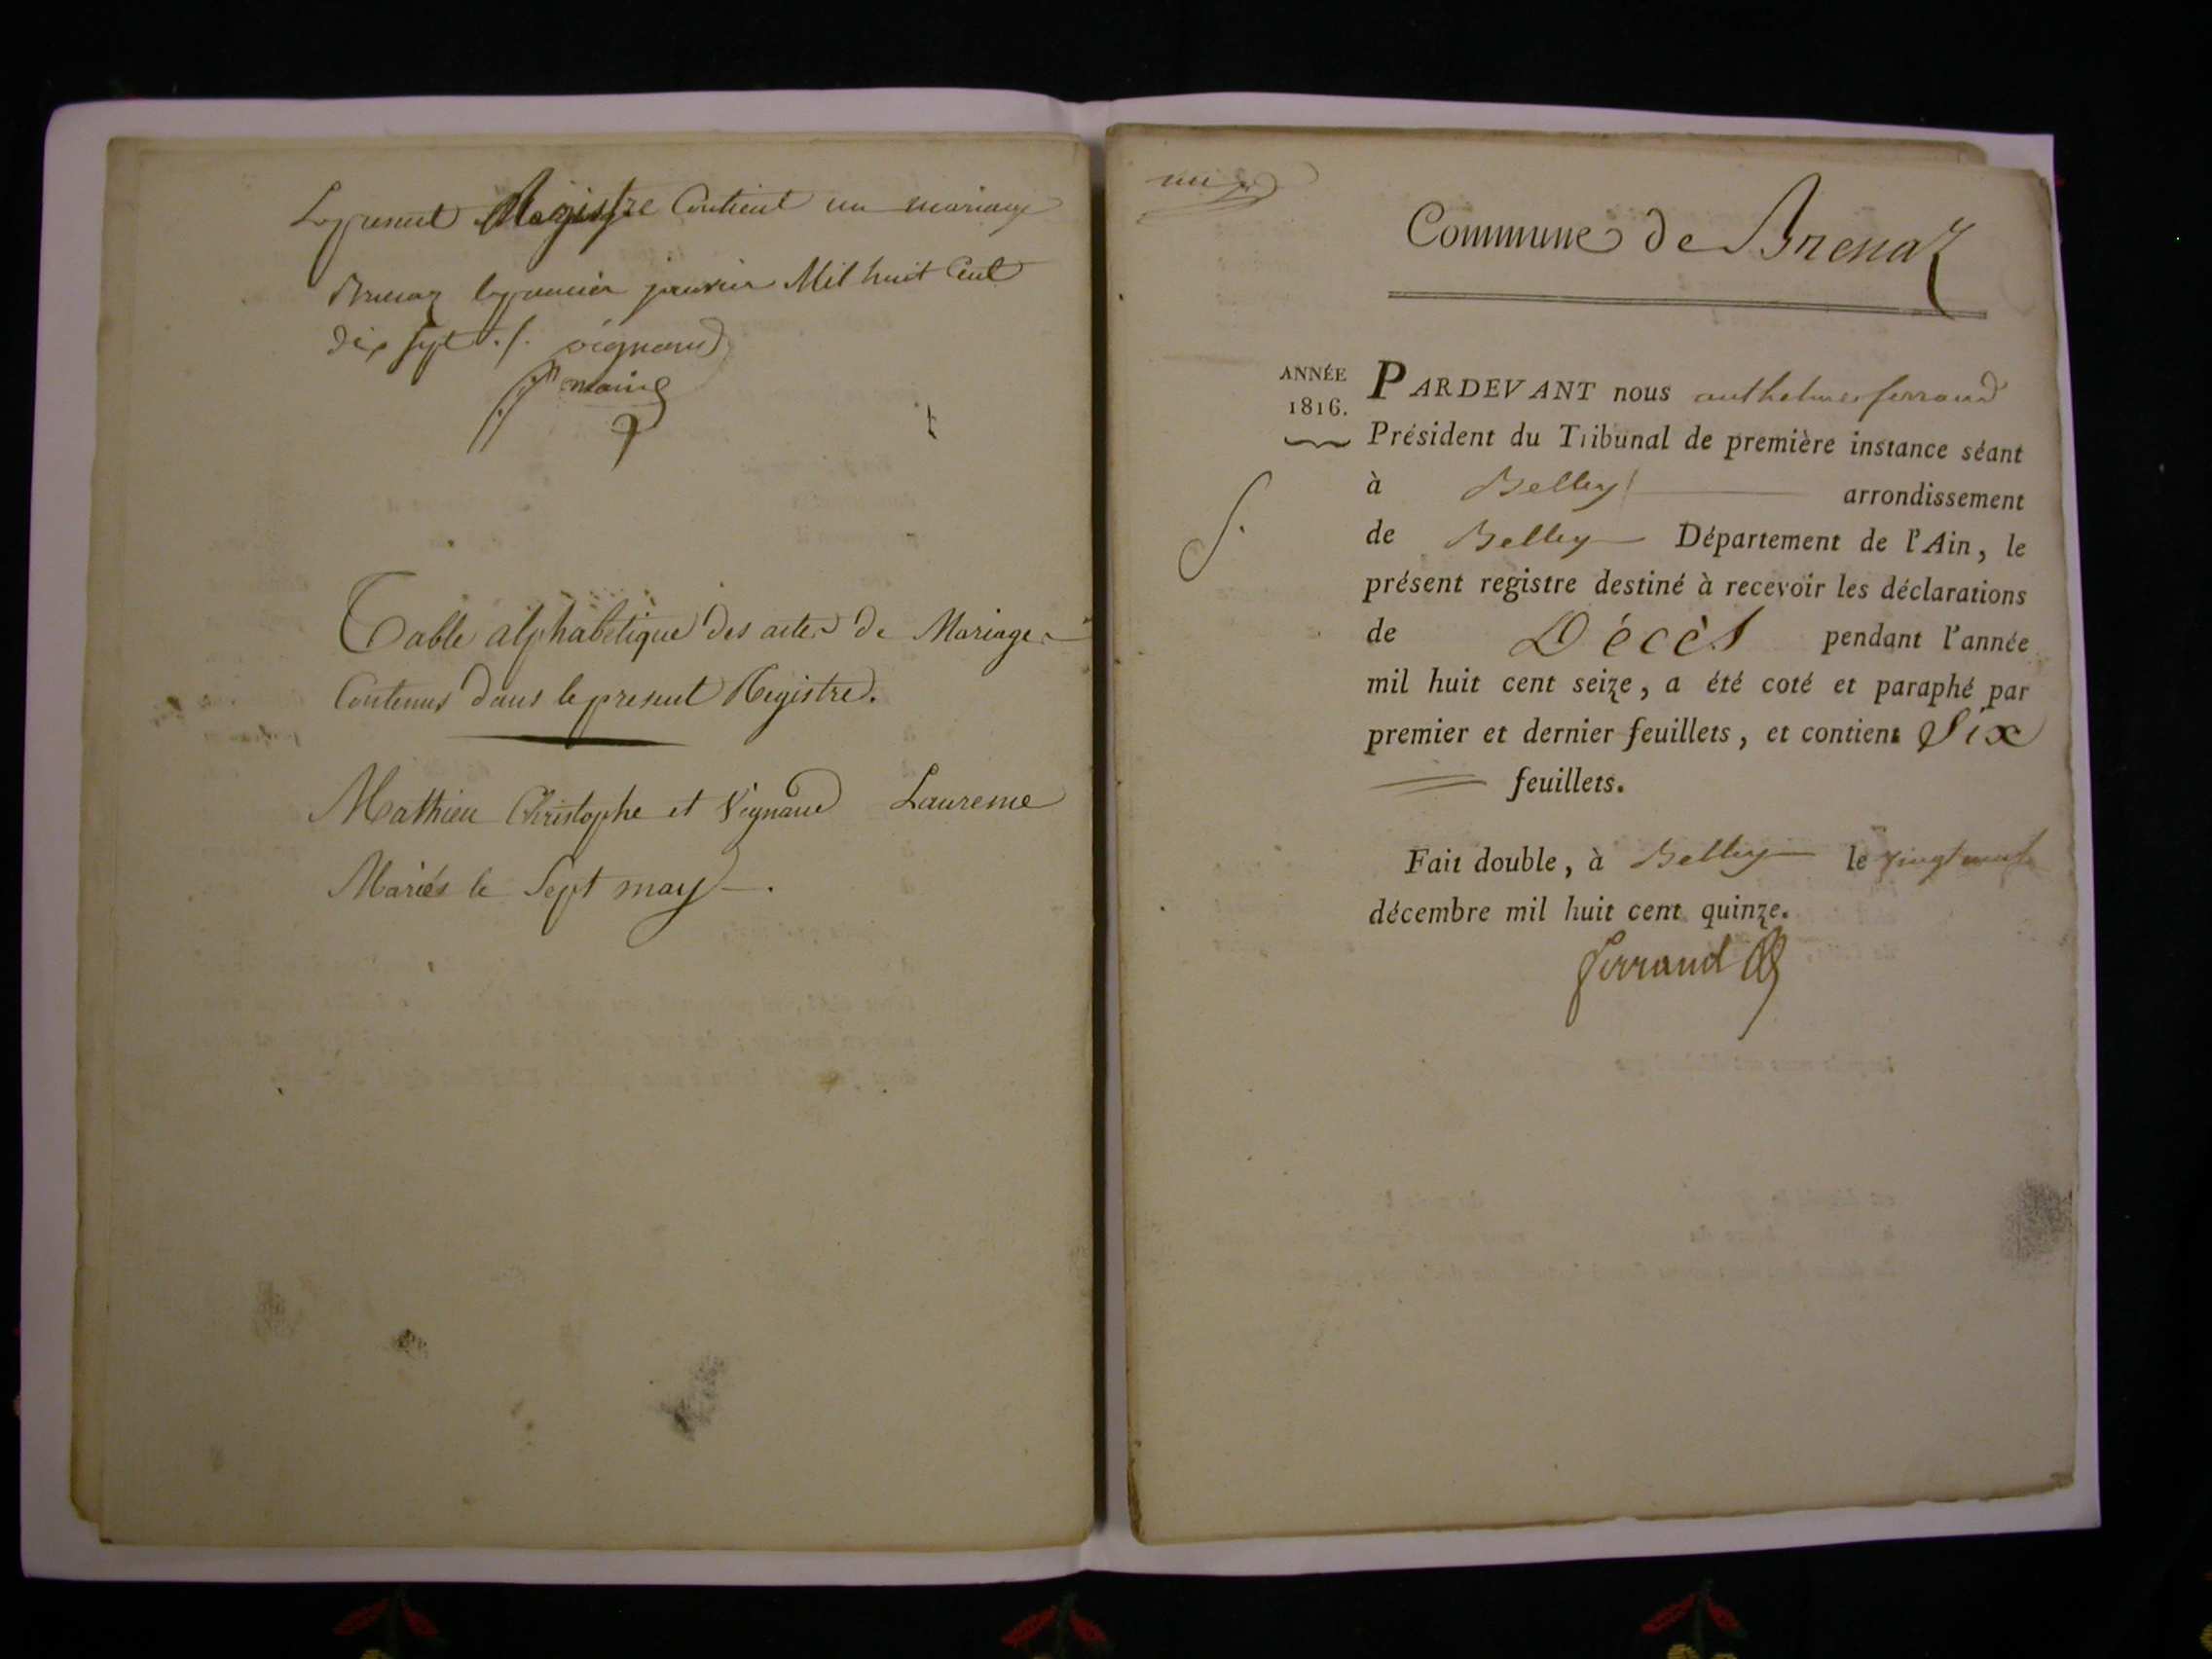 Le present Registre Contient un mariage
Brenaz le premier janvier Mil huit Cent
dix sept ./. vignand
maire
Table alphabetique des actes de Mariage
Contenus dans le present Registre.
Mathieu Christophe et Vignand Laurence
Mariés le Sept may.
Commune de Brenaz
ANNÉE
1816.
PARDEVANT nous anthelme ferrand
Président du Tribunal de première instance séant
à Belley arrondissement
de Belley Département de l'Ain, le
présent registre destiné à recevoir les déclarations
de Décès pendant l'année
mil huit cent seize, a été coté et paraphé par
premier et dernier feuillets, et contient Six
feuillets.
Fait double, à Belley le vingt
décembre mil huit cent quinze.
ferrand